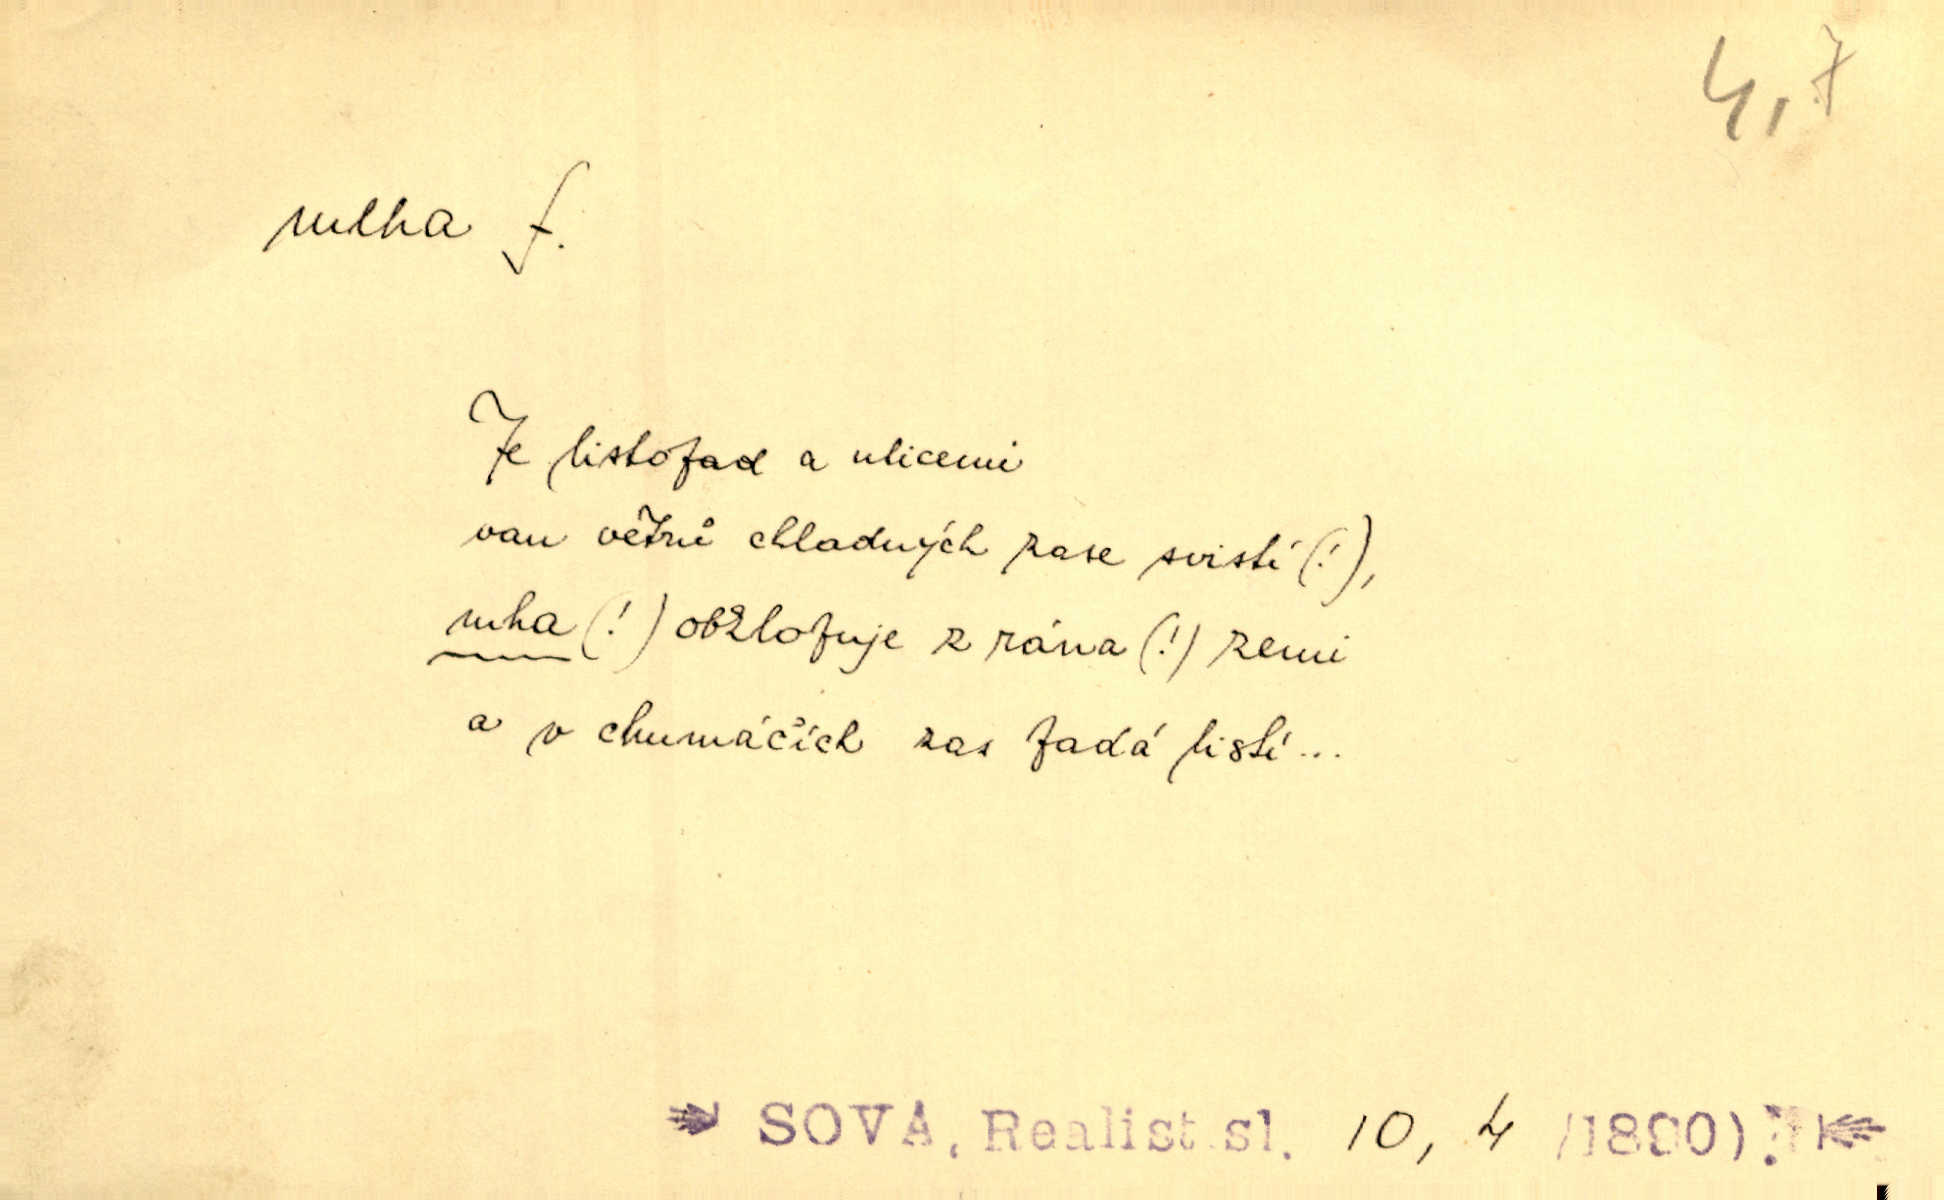 4,7
mlha f.
Je listopad a ulicemi
van větrů chladných zase svistí (!),
mha (!) obžlofuje z rána (!) zemi
a v chumáčích zas padá listí...
SOVA, Realist.sl. 10, 4 /1890).